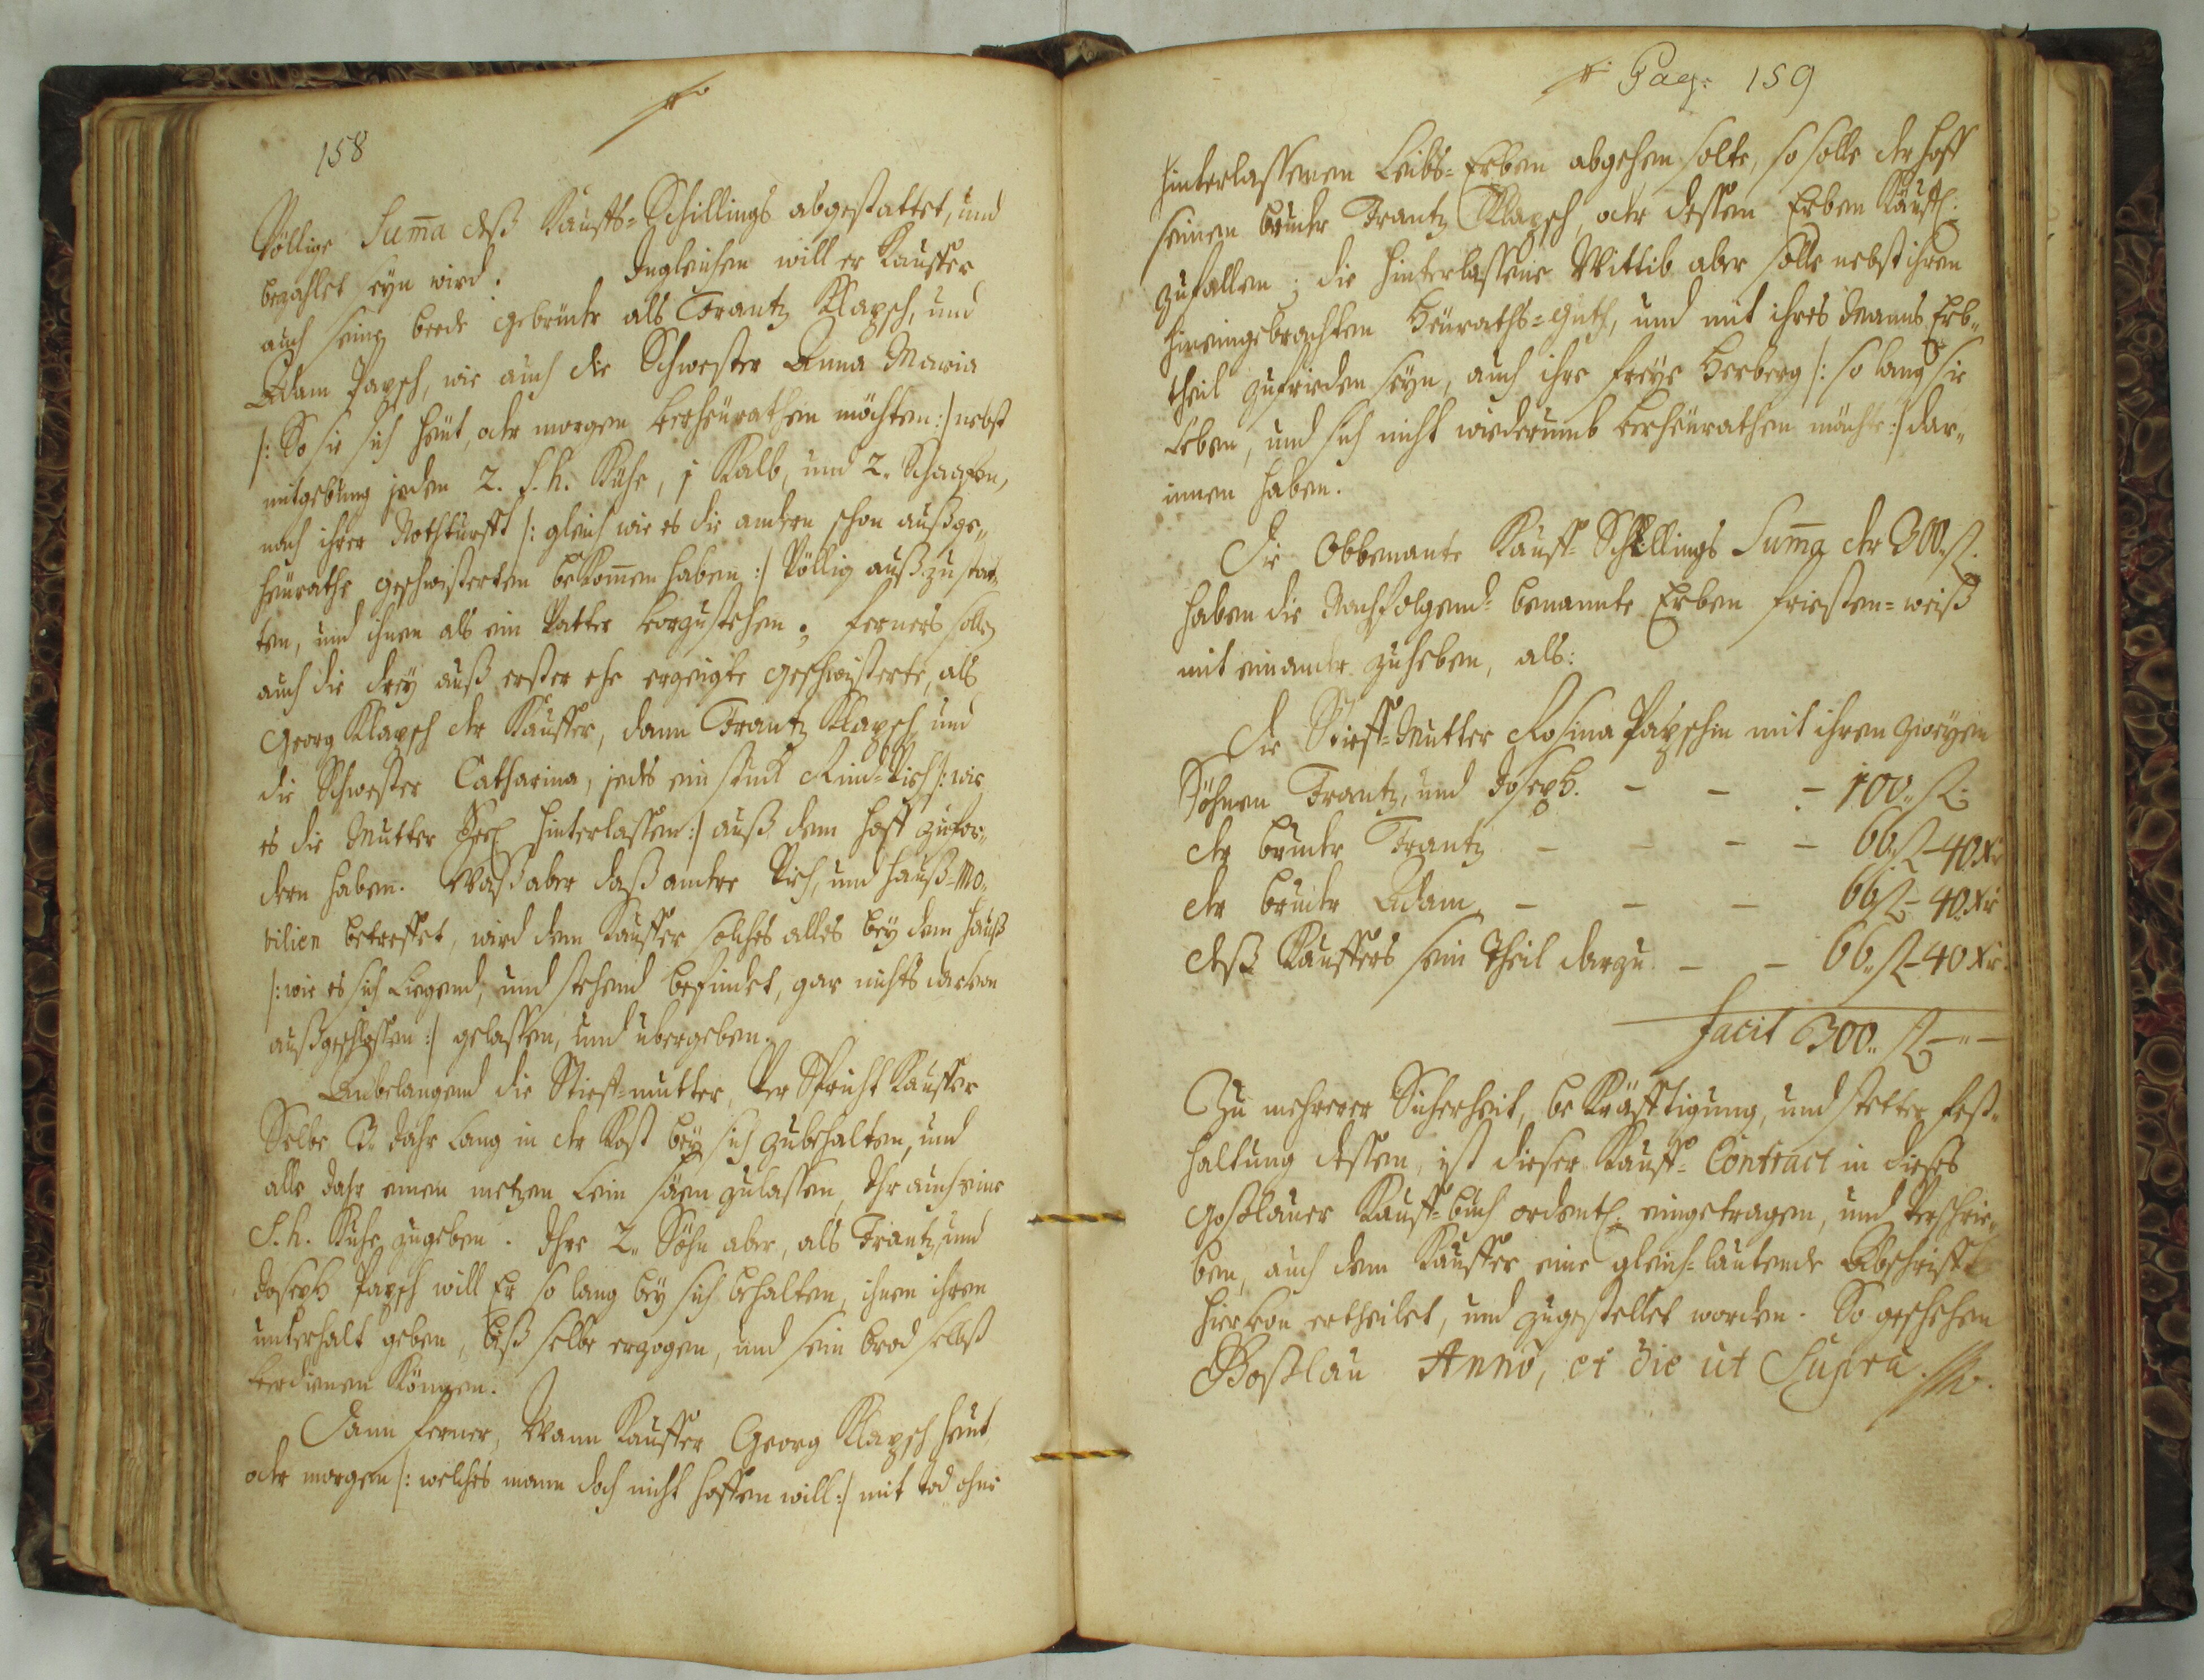 158
Völlige Suma̅ deß Kauff-Schillings abgestattet, und
bezahlet seyn wird. Ingleichen will er Kauffer
auch seine beede gebrüder als Frantz Klapsch, und
Adam Papsch, wie auch die Schwester Anna Maria
/: So sie sich heüt, oder morgen verheürathen möchten :/ nebst
mitgebung jeden 2. s. h. Kühe, 1 Kalb, und 2. Schaafen,
nach ihrer Nothturfft /: gleich wie es die andern schon außge„
heürathe geschwisterten bekom̅en haben :/ Völlig auß zu stat„
ten, und ihnen als ein Vatter vorzustehen; ferners sollen
auch die drey auß erster ehe erzeigte geschwisterte, als
Georg Klapsch der Kauffer, dann Frantz Klapsch, und
die Schwester Catharina, jedes ein stuck Rind-Vieh /: wie
es die Mutter Seel. hinterlassen :/ auß dem hoff zufor„
dern haben. Waß aber daß andere Vieh, und hauß-Mo„
bilien betreffet, wird dem Kauffer solches alles bey dem hauß
/: wie es sich liegend, und stehend befindet, gar nichts darvon
außgeschlossen :/ gelassen, und übergeben.
Anbelangend die Stieff-mutter, Verspricht Kauffer
Selbe 3. Jahr lang in der Kost bey sich zubehalten, und
alle Jahr einen metzen Lein säen zulassen, Ihr auch eine
S. h. Kuhe zugeben. Ihre 2. Söhn aber, als Frantz, und
Joseph Papsch will Er so lang bey sich behalten, ihnen ihren
unterhalt geben, biß selbe erzogen, und sein brod selbst
verdienen Können.
Dann ferner, Wann Kauffer Georg Klapsch heut,
oder morgen /: welches mann doch nicht hoffen will :/ mit tod ohne
Pag: 159
hinterlassenen Leibs-Erben abgehen solte, so solle der hoff
seinen bruder Frantz Klapsch, oder dessen Erben Käuffl:
zufallen; die hinterlassene Wittib aber solle nebst ihren
hineingebrachten Heüraths-guth, und mit ihres Manns Erb„
theil zufrieden seyn, auch ihre freye Herberg /: so lang sie
Leben, und sich nicht wiederumb verheürathen möchte :/ dar„
innen haben.
Die Obbenante Kauff-Schillings Suma̅ der 300. fl.
haben die Nachfolgend-benannte Erben friesten-weiß
mit einander zuheben, als:
Die Stieff-Mutter Rosina Papschin mit ihren zweyen
Söhnen Frantz, und Joseph. - - - 100. fl.
der bruder Frantz - - - - 66. fl - 40 Xr
der bruder Adam - - - 66 fl - 40 Xr
deß Kauffers sein Theil darzu - - 66. fl - 40 Xr.
Facit 300. fl - " -
Zu mehrerer Sicherheit, bekräfftigung, und stetter fest„
haltung dessen, ist dieser Kauff-Contract in dieses
Goßlauer Kauff-buch ordentl: eingetragen, und Verschrie„
ben, auch dem Kauffer eine gleich-lautende Abschrifft
hiervon ertheilet, und zugestellet worden. So geschehen
Goßlau Anno, et die ut Supra.